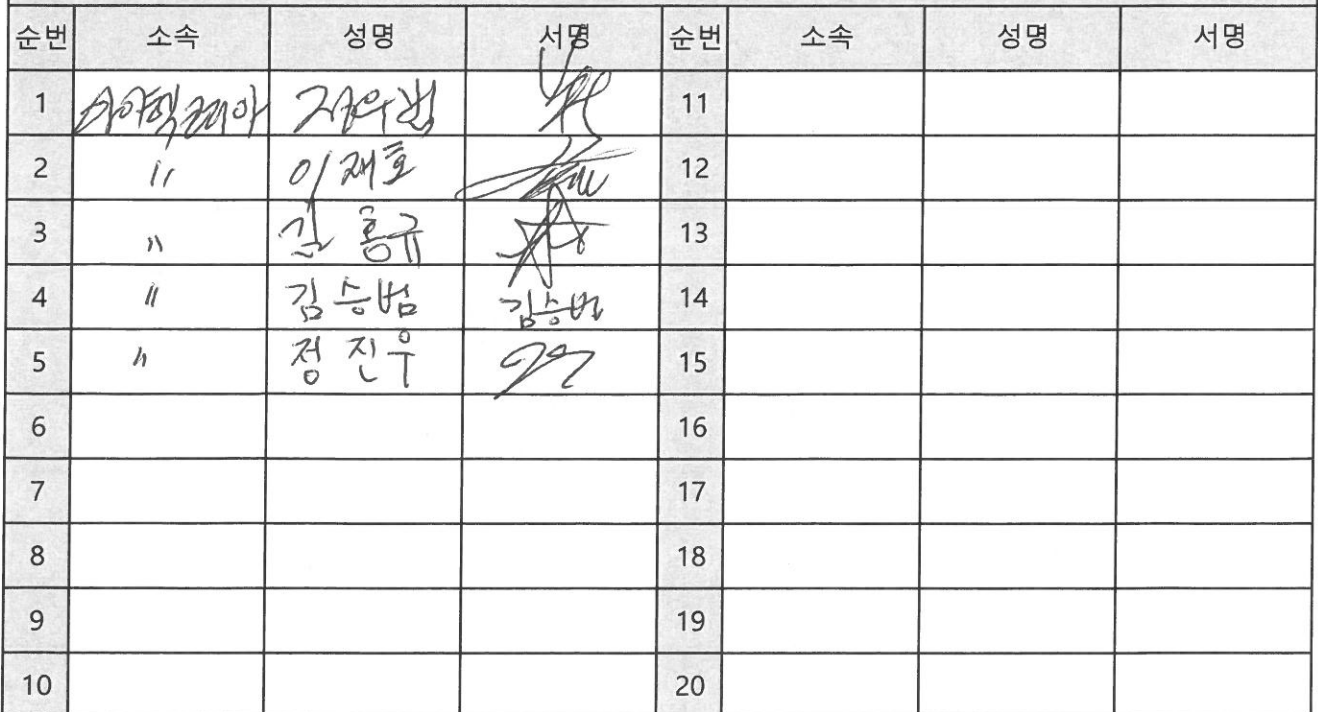 순번 소속 성명 서명 순번 소속 성명 서명
1 11
2 〃 이재호 12
3 〃 김홍규 13
4 〃 김승범 김승범 14
5 〃 정진우 15
6 16
7 17
8 18
9 19
10 20